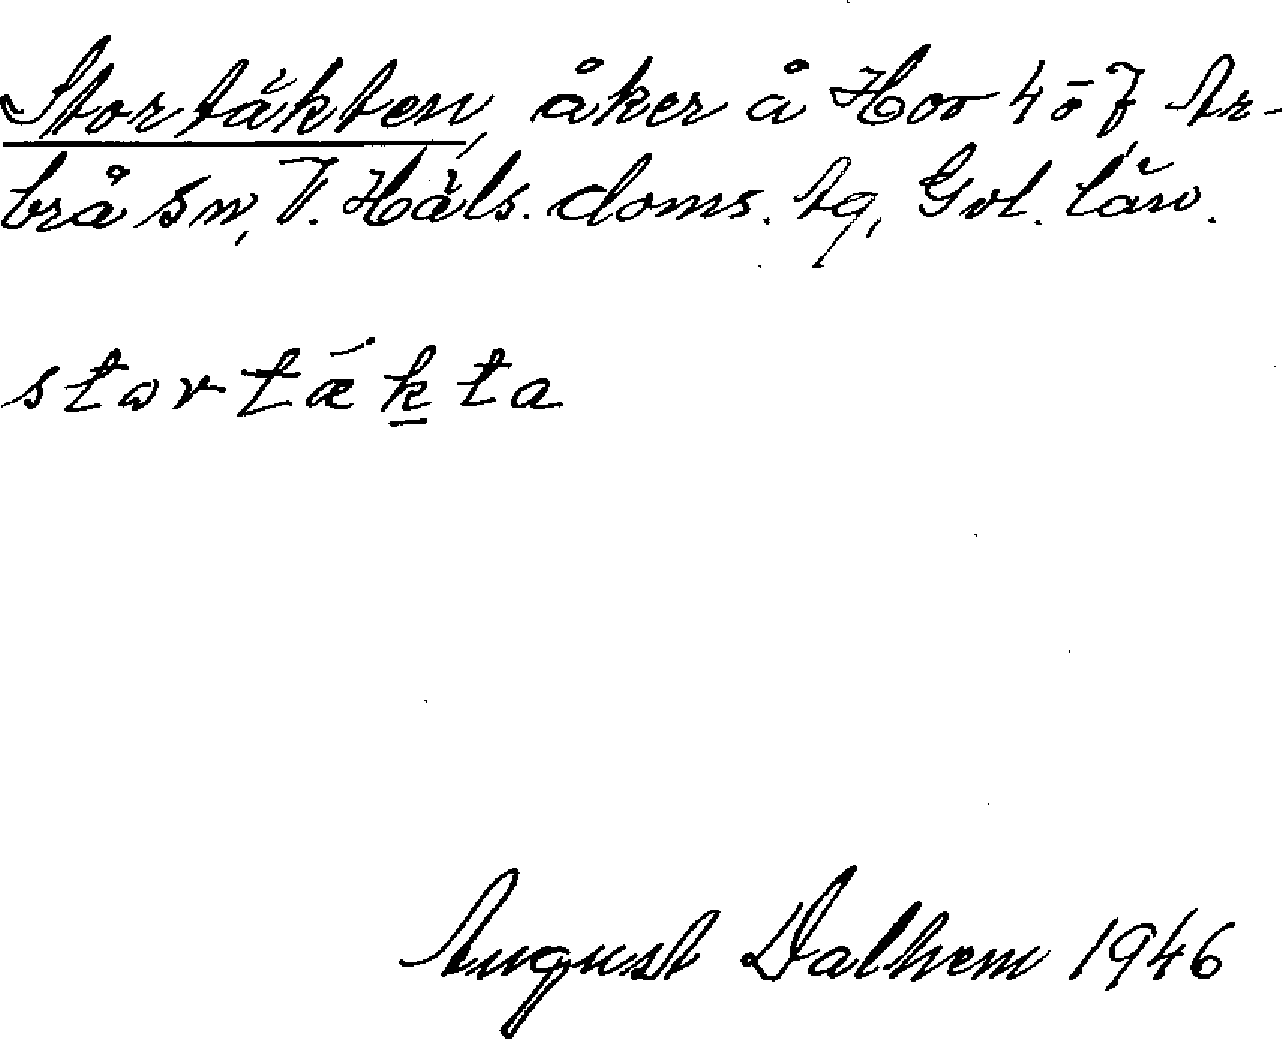 Stortäkten, åker å Hov 4 o 7, Ar-
brå sn, V. Häls. doms. Ag, Gvl. län.
stortækta
August Dalhem 1946